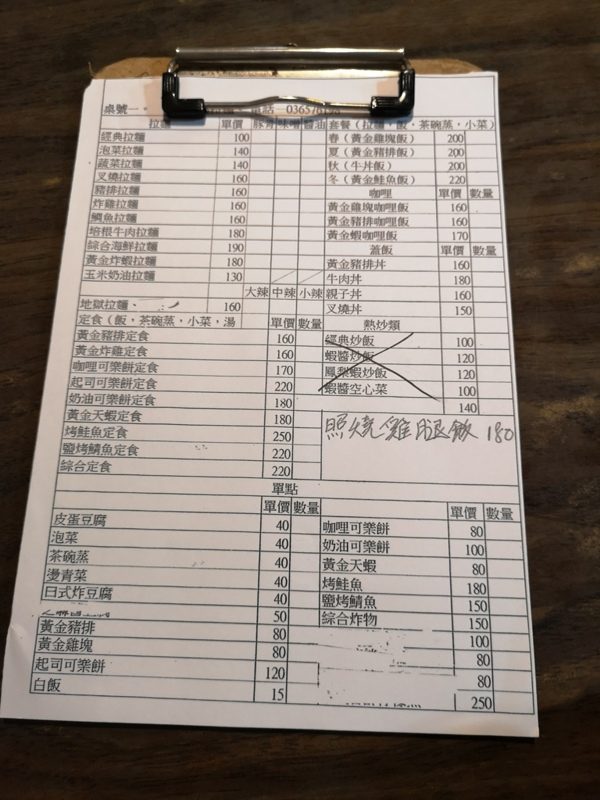 桌號
電話 0365761
拉麵 單價 豚骨 味噌 醬油
經典拉麵 100
泡菜拉麵 140
蔬菜拉麵 140
叉燒拉麵 160
豬排拉麵 160
炸雞拉麵 160
鯛魚拉麵 160
培根牛肉拉麵 180
綜合海鮮拉麵 190
黃金炸蝦拉麵 180
玉米奶油拉麵 130
大辣 中辣 小辣
地獄拉麵、 160
定食（飯，茶碗蒸，小菜，湯 單價 數量
黃金豬排定食 160
黃金炸雞定食 160
咖哩可樂餅定食 170
起司可樂餅定食 220
奶油可樂餅定食 180
黃金天蝦定食 180
烤鮭魚定食 250
鹽烤鯖魚定食 220
綜合定食 220
套餐（拉麵，飯，茶碗蒸，小菜）
春（黃金雞塊飯） 200
夏（黃金豬排飯） 200
秋（牛丼飯） 200
冬（黃金鮭魚飯） 220
咖哩 單價 數量
黃金雞塊咖哩飯 160
黃金豬排咖哩飯 160
黃金蝦咖哩飯 170
蓋飯 單價 數量
黃金豬排丼 160
牛肉丼 180
親子丼 160
叉燒丼 150
熱炒類
經典炒飯 100
蝦醬炒飯 120
鳳梨蝦炒飯 120
蝦醬空心菜 100
140
照燒雞腿飯 180
單點
單價 數量
皮蛋豆腐 40
泡菜 40
茶碗蒸 40
燙青菜 40
日式炸豆腐 40
50
黃金豬排 80
黃金雞塊 80
起司可樂餅 120
白飯 15
單價 數量
咖哩可樂餅 80
奶油可樂餅 100
黃金天蝦 80
烤鮭魚 180
鹽烤鯖魚 150
綜合炸物 150
100
80
80
250